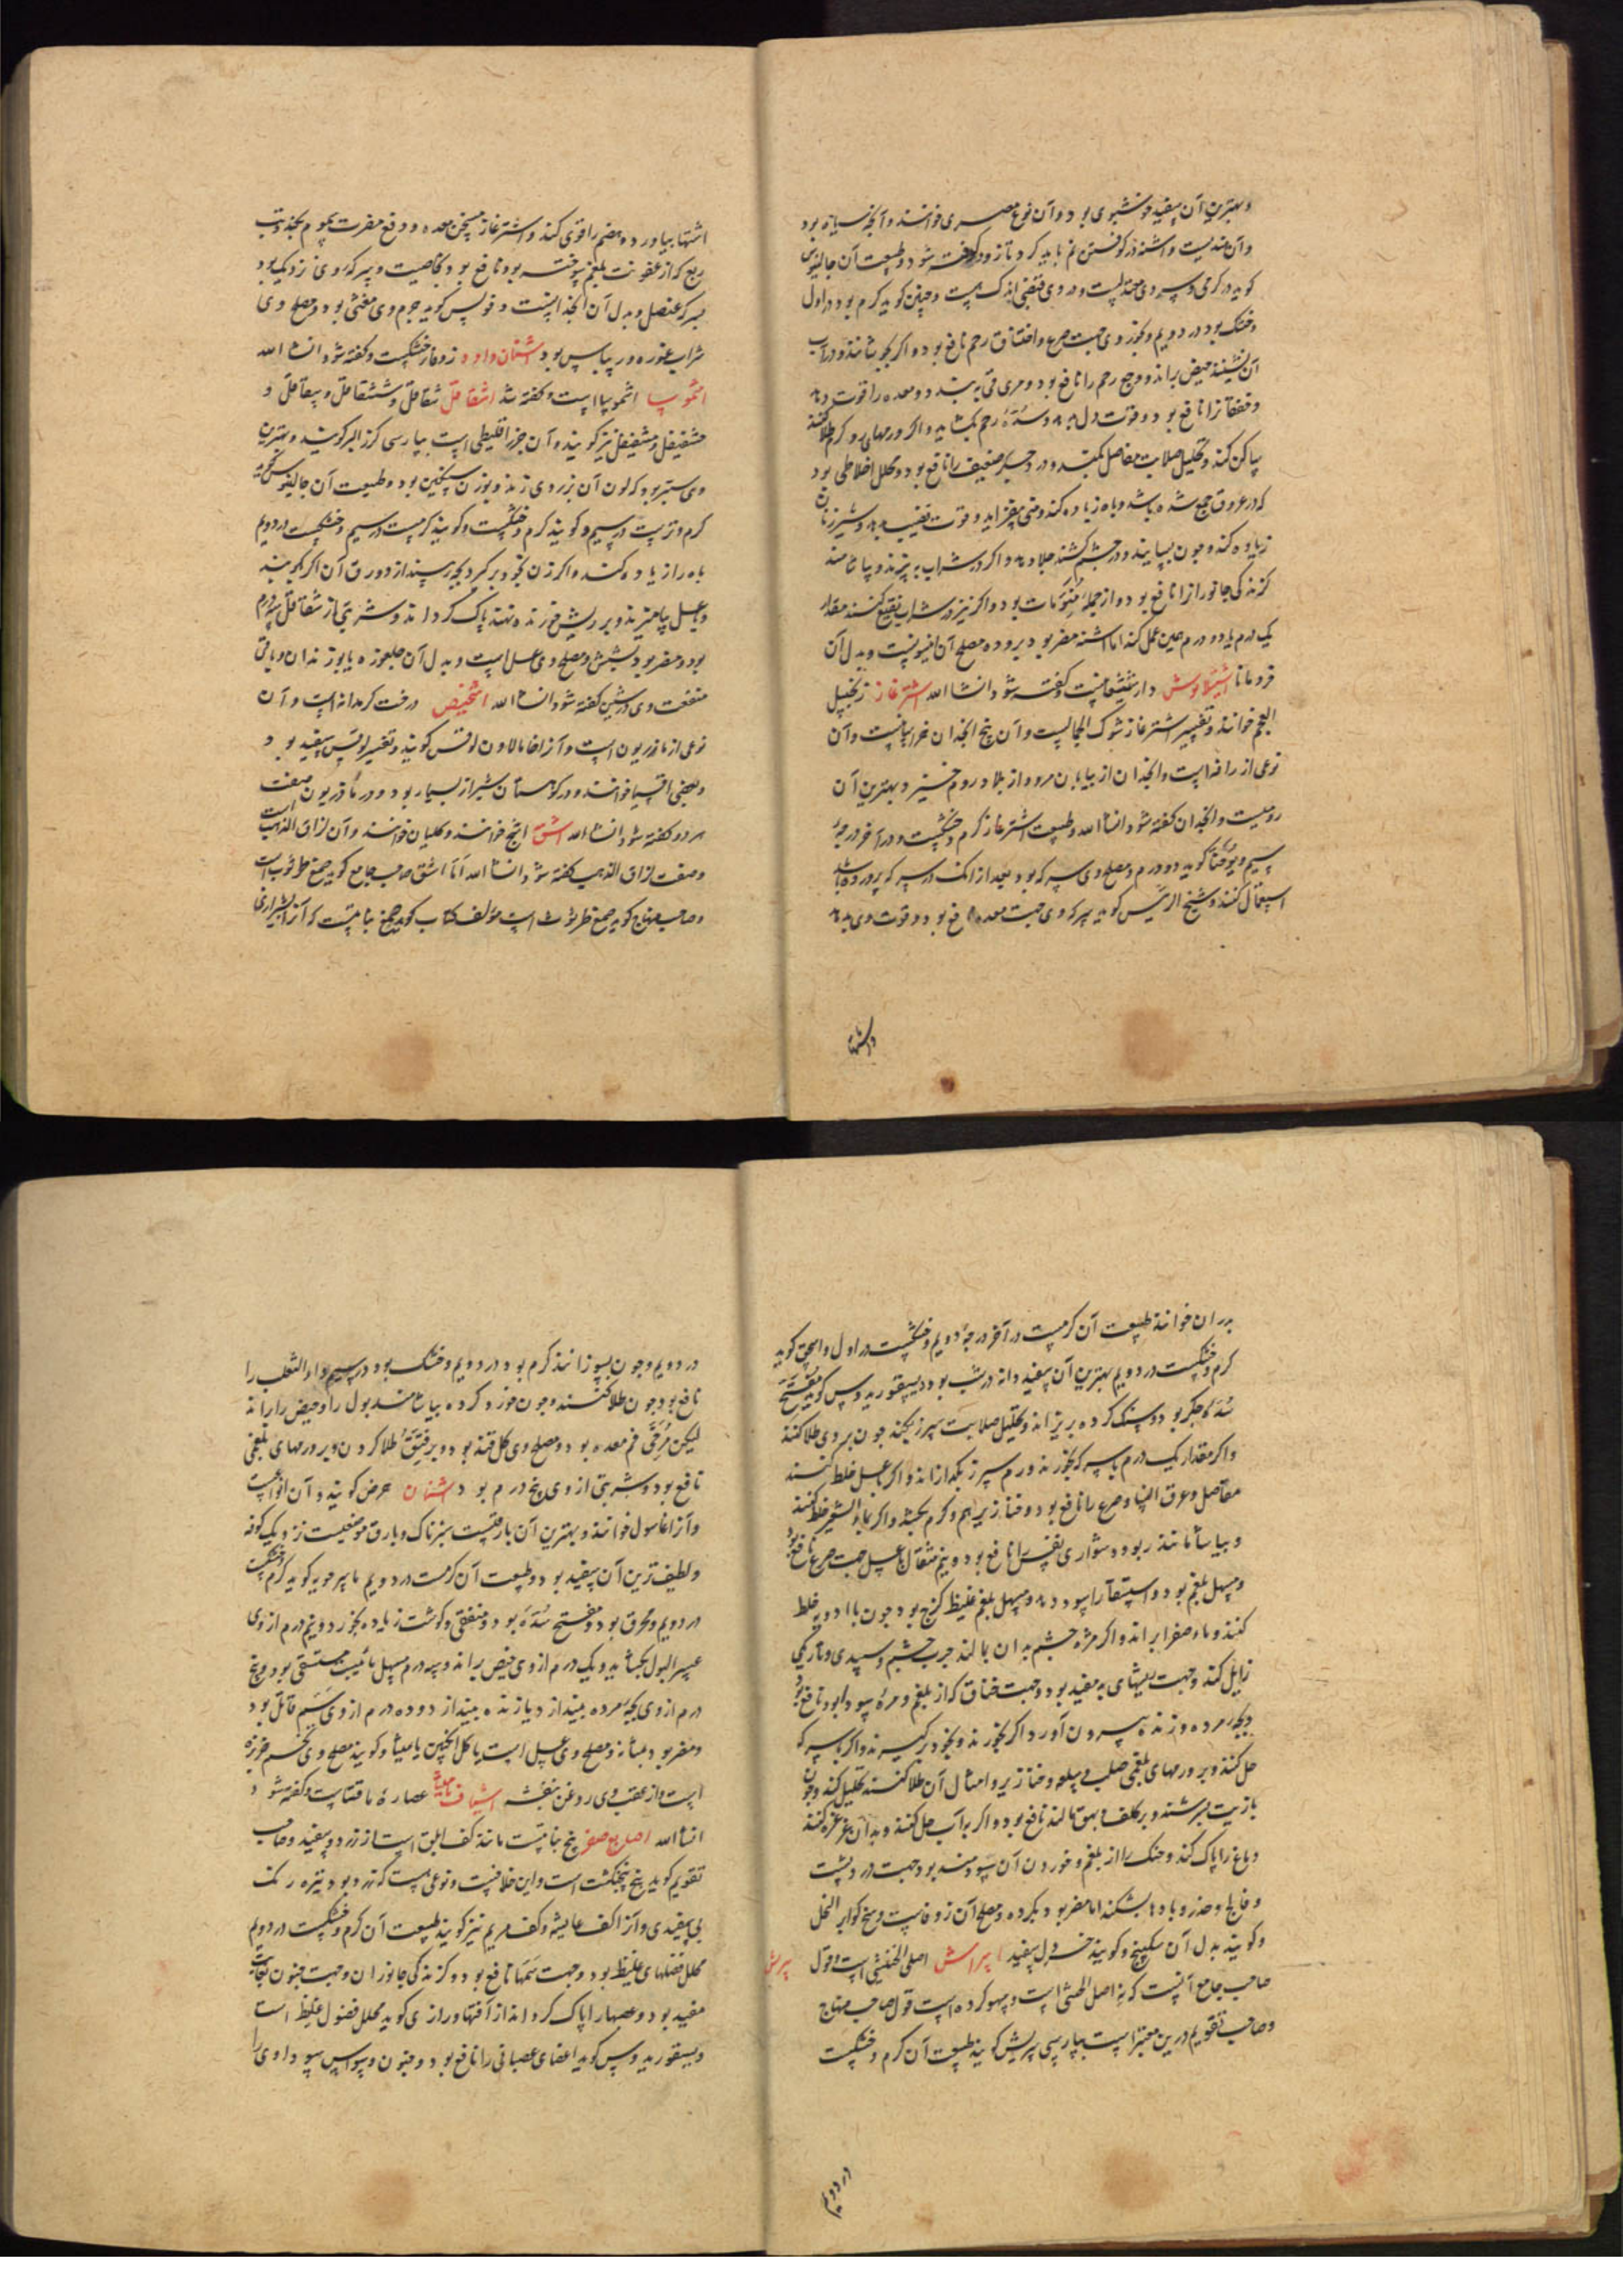 وبهترین آن سفید خوشبوی بود و آن نوع مصری خوانند و آنچه سیاه بود
و آن هندیست و اشنه در کوفتن نم باید کرد تا زود کوفته شود و طبیعت آن جالینوس
کوید در کرمی و سردی معتدلست و در وی قبضی اندک هست و حنین کوید کرم بود در اول
و خشک بود در دویم و بخور وی جهت صرع و اختناق رحم نافع بود و اکر بجوشانند و در آب
آن نشینند حیض براند و وجع رحم را نافع بود و مری قی ببندد و معده را قوت دهد
و خفقانرا نافع بود و قوت دل بدهد و سدّه رحم بکشاید و اکر بر ورمهای کرم طلا کنند
ساکن کند و تحلیل صلابت مفاصل بکند و درد جگر ضعیف را نافع بود و محلل اخلاطی بود
که در عروق جمع شده باشد و باه زیاده کند و منی بیفزاید و قوت قضیب بدهد و شیر زنان
زیاده کند و چون بسایند و در چشم کشند جلا دهد و اکر در شراب بپزند و بیاشامند
کزندکی جانورانرا نافع بود و از جمله مُنَوّمات بود و اکر نیز در شراب نقیع کنند مقدار
یک درم یا دو درم همین عمل کند اما اشنه مضر بود بروده مصلح آن انیسونست و بدل آن
قردمانا اشیلابوش دارشیشعانست و کفته شود انشاالله اشترغاز زنجبیل
العجم خوانند و تفسیر اشترغاز شوک الجمالست و آن بیخ انجدان خراسانیست و آن
نوعی از رافه است و انجدان از بیابان مرو و از بلاد روم خیزد و بهترین آن
رومیست و انجدان کفته شود انشاالله و طبیعت اشترغاز کرم و خشکست و در آخر درجهٔ
سیم و یُوحَنّا کوید دو درم و مصلح وی سرکه بود بعد از آنک در سرکه پرورده باشند
استعمال کنند و شیخ الرئیس کوید سرکه وی جهت معده نافع بود و قوت وی بدهد
و اشتها
اشتها بیاورد و هضم را قوی کند و اشترغاز مسخن معده و دفع مضرت سموم بکند و تب
ربع که از عفونت بلغم سوخته بود نافع بود بخاصیت و سرکهٔ وی نزدیک بود
بسرکه عنصل و بدل آن انجدانست و فولس کوید جرم وی مغثی بود و مصلح وی
شراب غوره و ریباس بود اشنان داود زوفای خشکست و کفته شود انشا الله
اشموسا اشموسا است و کفته شد اشقاقل شقاقل و ششقاقل و سقاقل و
حشقیقل و شقیقل نیز کویند و آن جزر اقلیطی است بپارسی کرز البر کویند و بهترین
وی ستبر بود که لون آن بزردی زند و بوزن سنکین بود و طبیعت آن جالینوس کوید
کرم و ترست در سیم و کویند کرم و خشکست و کویند کرمست در سیم و خشکست در دویم
باه را زیاده کند و اکر زن بخود برکیرد بچه بیندازد ورق آن اکر بکوبند
و با عسل بیامیزند و بر ریش خورنده نهند پاک کرداند و شربتی از شقاقل سه درم
بود و مضر بود بشش و مصلح وی عسل است و بدل آن جلغوزه یا بوزندان و باقی
منفعت وی در شین کفته شود انشا الله اشخیص درخت کرمدانه است و آن
نوعی از مازریون است و آنرا خامالاون لوقس کویند و تفسیر لوقس سفید بود و
و بعضی اقسیا خوانند و در کوهستان شیراز بسیار بود و در مازریون صفت
هر دو کفته شود انشا الله اشق اشج خوانند و کلیان خوانند و آن لزاق الذهب است
و صفت لزاق الذهب کفته شود انشا الله امّا اشق صاحب جامع کوید صمغ طرثوث است
و صاحب منهاج کوید صمغ طرثوث است مؤلف کتاب کوید صمغ نباتیست که آنرا بشیرازی
بدران خوانند طبیعت آن کرمست در آخر درجهٔ دویم و خشکست در اول و اسحق کوید
کرم و خشکست در دویم بهترین آن سفید دانه درشت بود دیسقوریدوس کوید مُفتّح
سُدّهٔ جکر بود و سنک کرده بریزاند و تحلیل صلابت سپرز بکند چون بر وی طلا کنند
و اکر مقدار یک درم با سرکه بخورند ورم سپرز بکدازاند و اکر با عسل خلط کنند
مفاصل و عرق النسا و صرع را نافع بود و خنازیر هم و کرم بکشد و اکر بماء الشعیر خلط کنند
و بیاشامند ربو و دشواری نفس را نافع بود و نیم مثقال با عسل جهت صرع نافع بود
و مسهل بلغم بود و استسقا را سود دهد و مسهل بلغم غلیظ لزج بود چون با ادویه خلط
کنند و ماء صفرا براند و اکر مژه چشم بدان بمالند جرب چشم و سپیدی و تاریکی
زایل کند و جهت ریشهای بد مفید بود و جهت خناق که از بلغم و مرّه سودا بود نافع بود
و بچه مرده و زنده بیرون آورد اکر بخورند و بخود برکیرند و اکر با سرکه
حل کنند و بر ورمهای بلغمی صلب و سلعه و خنازیر و امثال آن طلا کنند تحلیل کند و چون
با زیت بسرشند و بر کلف و بهق مالند نافع بود و اکر بآب حل کنند و بدان غرغره کنند
دماغ را پاک کند و حنک را از بلغم و خوردن آن سودمند بود جهت درد پشت
و فالج و خدر و بادها بشکند اما مضر بود بکرده و مصلح آن زوفاست و وسخ کوایر النحل
و کویند بدل آن سکبینج و کویند خردل سفید اسراش اصل الخنثی است و قول سرش
صاحب جامع آنست که نه اصل الخنثی است و سهو کرده است قول صاحب منهاج
و صاحب تقویم درین معتبر است بپارسی سریش کویند طبیعت آن کرم و خشکست
در دویم
در دویم و چون بسوزانند کرم بود در دویم و خشک بود در سیم داء الثعلب را
نافع بود چون طلا کنند و چون خورد کرده بیاشامند بول را و حیض را براند
لیکن مُرخّی فم معده بود و مصلح وی کلقند بود و بر فتق طلا کردن و بر ورمهای بلغمی
نافع بود و شربتی از وی پنج درم بود اشنان حرض کویند و آن انواعست
و آنرا غاسول خوانند و بهترین آن بارقیست سبزناک و بارق موضعیست نزدیک کوفه
و لطیف ترین آن سفید بود و طبیعت آن کرمست در دویم ماسرحویه کوید کرم و خشکست
در دویم و محرق بود و مفتح سُدّه بود و منقی و کوشت زیاده بخورد و نیم درم از وی
عسر البول بکشاید و یک درم از وی حیض براند و سه درم مسهل مائیت مستسقی بود و پنج
درم از وی بچهٔ مرده بیندازد یا زنده بیندازد و ده درم از وی سَمّ قاتل بود
و مضر بود بمثانه و مصلح وی عسل است یا کل انکبین یا میبه و کویند مصلح وی تخم خرفه
است و از عقب وی روغن بنفشه اشیاف مامیثا عصارهٔ مامیثاست و کفته شود
انشا الله اصابع صفر بیخ نباتیست مانند کف ابلق است از زرد و سفید و صاحب
تقویم کوید بیخ پنجنکشت است و این خلافست و نوعی هست که زرد بود تیره رنک
بی سفیدی و آنرا کف عایشه و کف مریم نیز کویند طبیعت آن کرم و خشکست در دویم
محلل فضلهای غلیظ بود و جهت سمها نافع بود و کزندکی جانوران و جهت جنون بغایت
مفید بود و عصبها را پاک کرداند از آفتها و رازی کوید محلل فضول غلیظ است
و دیسقوریدوس کوید اعضای عصبانی را نافع بود و جنون و وسواس سوداوی را